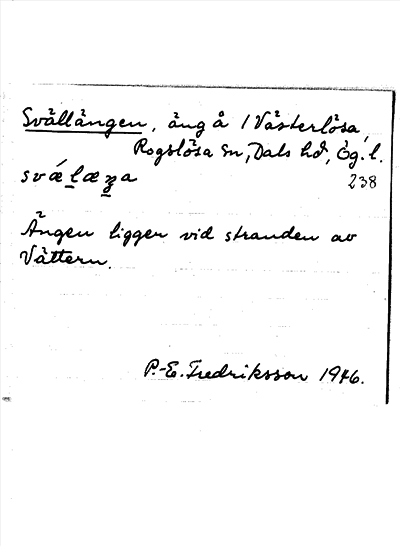 Svällängen, äng å 1 Västerlösa,
Rogslösa sn, Dals hd, Ög. l.
238
Ängen ligger vid stranden av
Vättern.
P.-E. Fredriksson 1946.